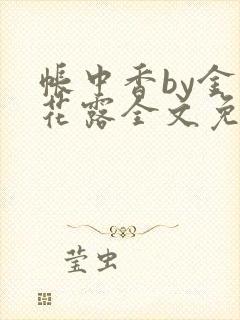 帐中香by金
花露全文免
莹虫